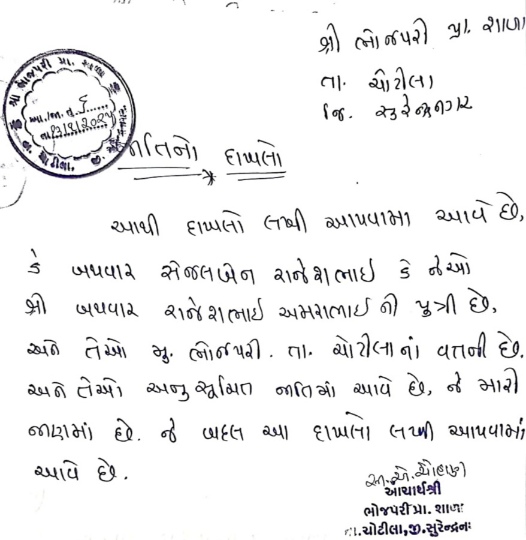 શ્રી ભોજપરી પ્રા. શાળા
તા. ચોટીલા
જિ. સુરેન્દ્રનગર
શ્રી ભોજપરી પ્રા. શાળા
જાતિનો દાખલો
આથી દાખલો લખી આપવામા આવે છે,
કે બથવાર સેજલબેન રાજેશભાઈ કે જેઓ
શ્રી બથવાર રાજેશભાઈ અમરાભાઈ ની પુત્રી છે,
અને તેઓ મુ. ભોજપરી. તા. ચોટીલાનાં વતની છે.
અને તેઓ અનુસૂચિત જાતિમાં આવે છે, જે મારી
જાણમાં છે. જે બદલ આ દાખલો લખી આપવામાં
આવે છે.
આચાર્યશ્રી
ભોજપરી પ્રા. શાળા
તા.ચોટીલા,જી.સુરેન્દ્રન